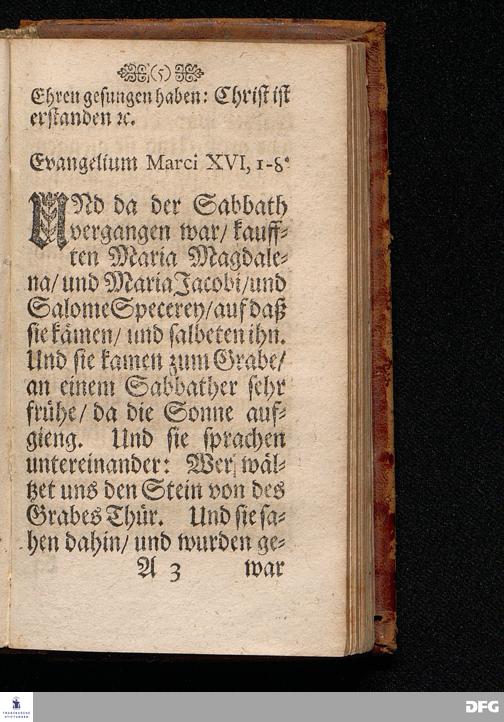 (5)
Ehren gesungen haben: Christ ist
erstanden ꝛc.
Evangelium Marci XVI, 1-8.
UNd da der Sabbath
vergangen war/ kauff-
ten Maria Magdale-
na/ und Maria Jacobi/ und
Salome Specerey/ auf daß
sie kämen/ und salbeten ihn.
Und sie kamen zum Grabe/
an einem Sabbather sehr
frühe/ da die Sonne auf-
gieng. Und sie sprachen
untereinander: Wer wäl-
tzet uns den Stein von des
Grabes Thür. Und sie sa-
hen dahin/ und wurden ge-
A 3 war
FRANCKESCHE STIFTUNGEN
DFG